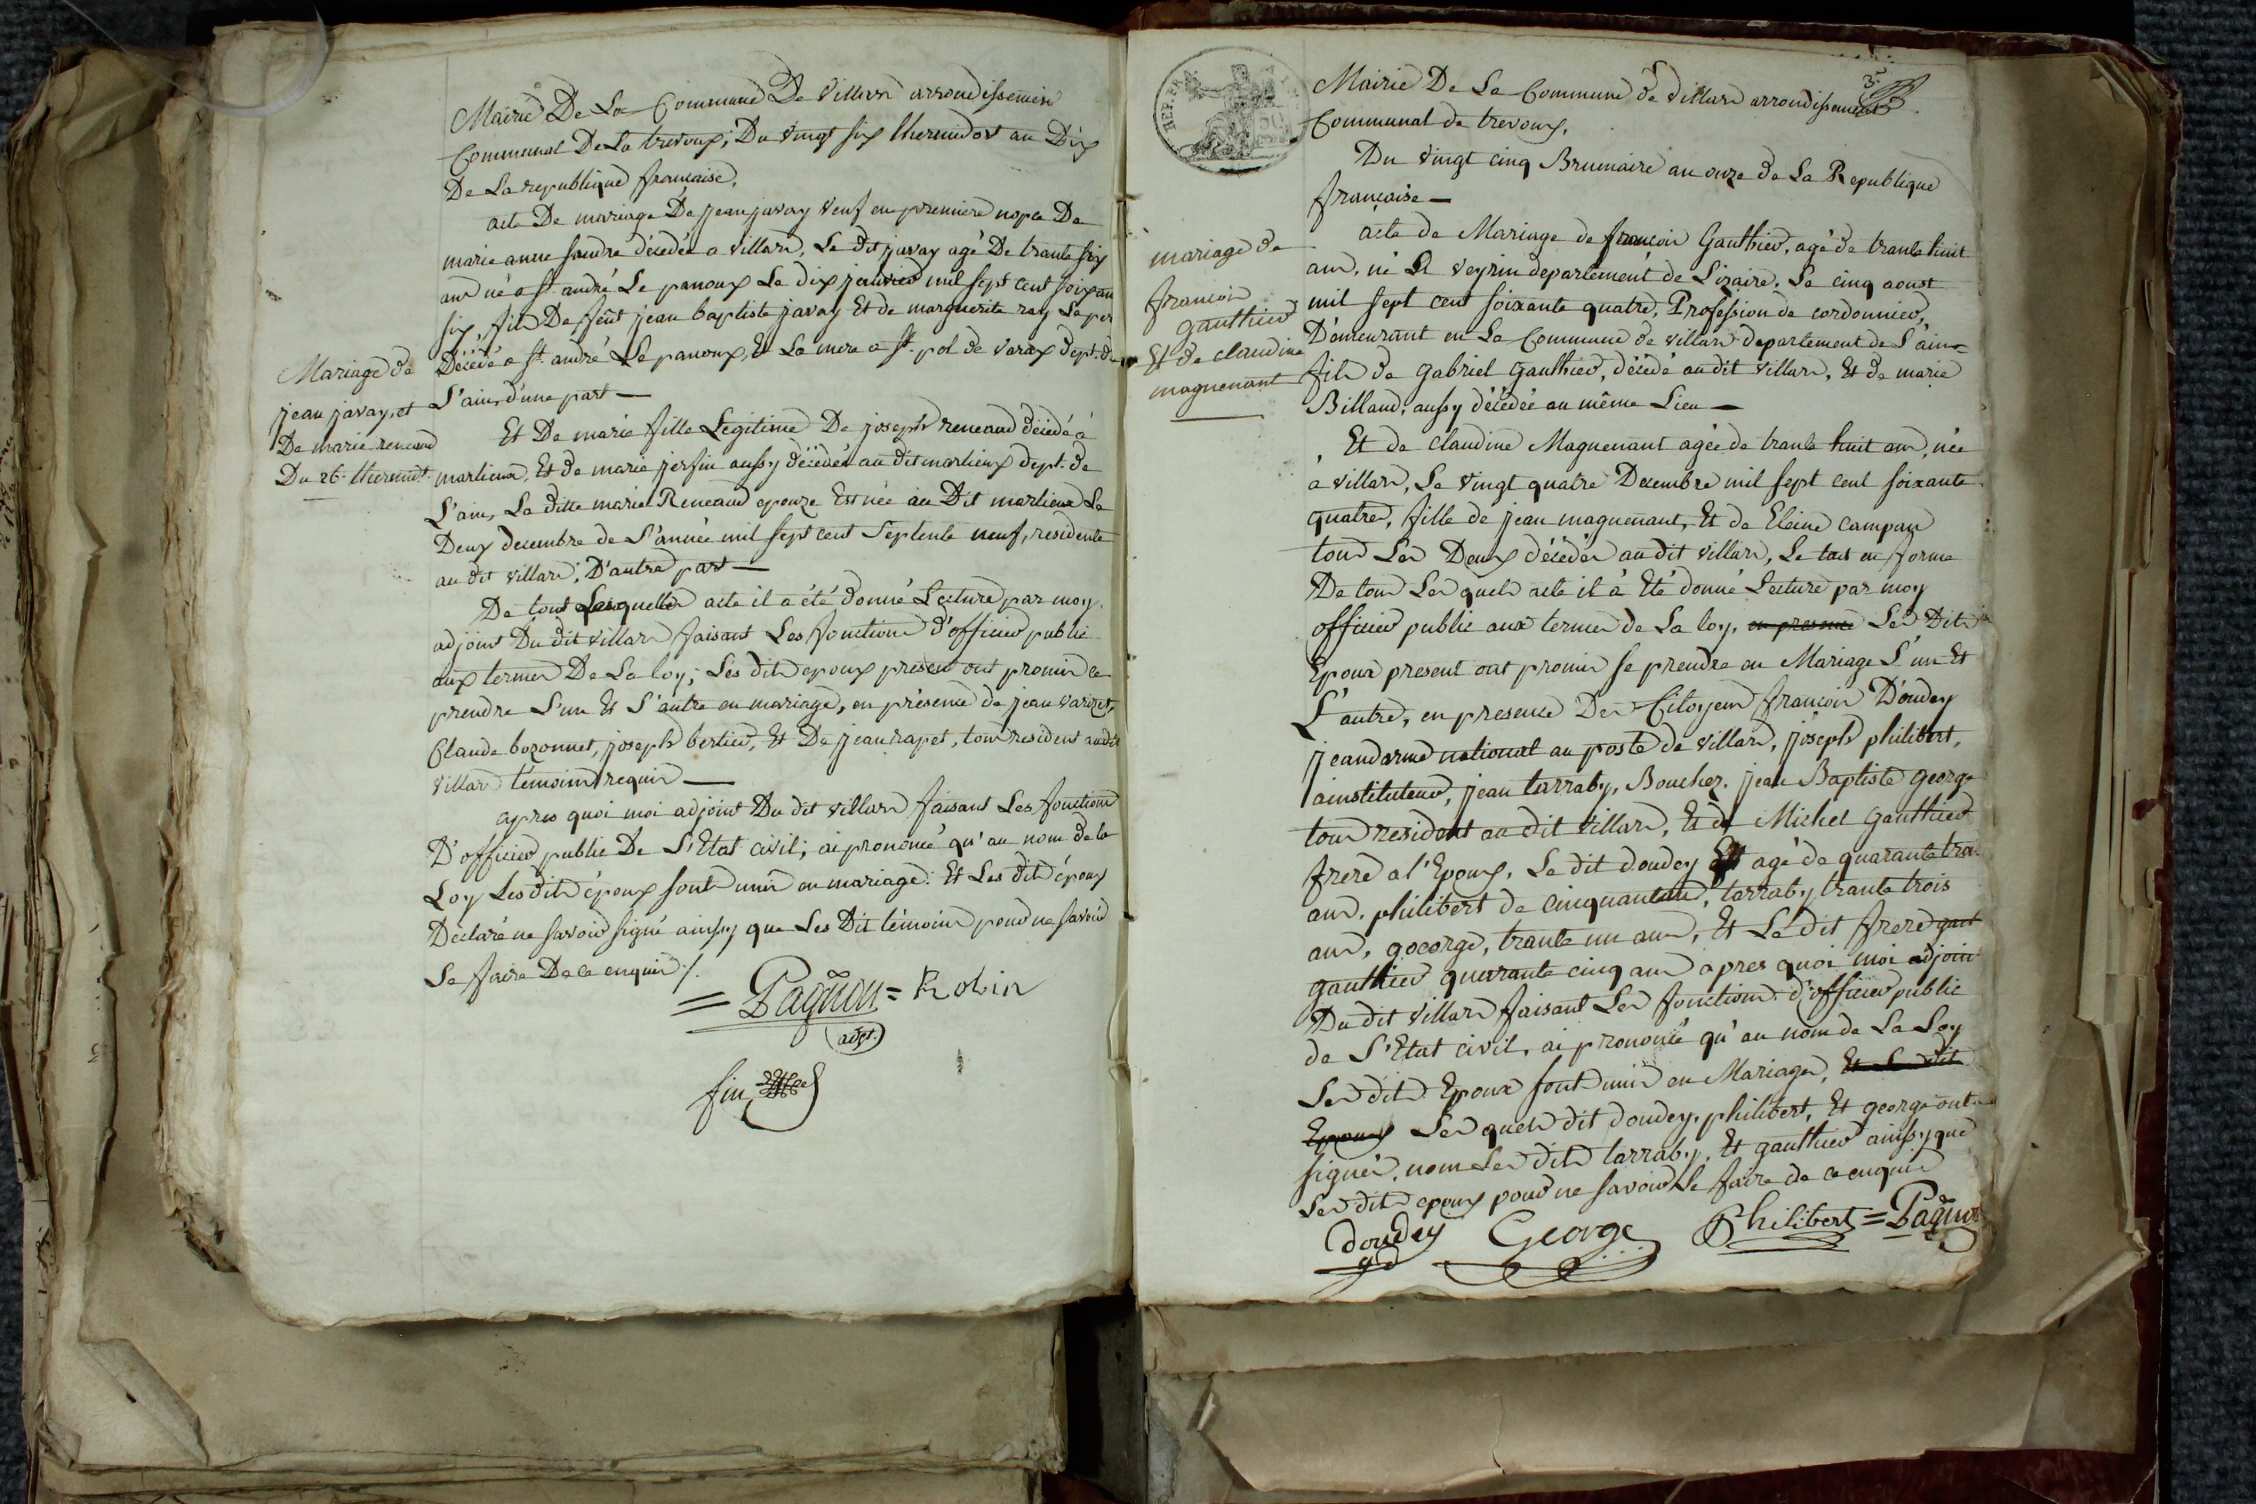 Mairie De La Commune De Villars arrondissement
Communal De La trevoux, Du vingt six thermidor an Dix
De La republique française.
acte De mariage De jean javay veuf en premiere nopce De
marie anne sandre décédée a villars, Le dit javay agé De trante six
ans né a St. andré Le panoux Le dix janvier mil sept cent soixan
six, fils De feut jean baptiste javay Et de marguerite ray Le per
Décédé a St. andré Le panoux, Et La mere a St. pol de varax dept. de
L'ain, d'une part —
Mariage de
jean javay, et
De marie reneaud
Du 26. thermid.
Et De marie fille Légitime De joseph reneaud décédé à
marlieux, Et de marie jerfin aussy décédée au dit marlieux dept. de
L'ain, La ditte marie Reneaud epouze Est née au Dit marlieux Le
Deux decembre de L'année mil sept cent Septente neuf, residente
au dit villars, D'autre part —
De tout Lesquelles acte il a été donné Lecture par moy
adjoint Du dit villars faisant Les fonctions d'officier public
aux termes De La loy; Les dits epoux present ont promis ce
prendre L'un Et L'autre en mariage, en présence de jean varizet,
Claude bozonnet, joseph bertier, Et De jean rapet, tous resident audit
villars témoins requis —
apres quoi moi adjoint Du dit villars faisant Les fonctions
D'officier public De L'Etat civil; ai prononcé qu'au nom de la
Loy Les dits époux sont unis en mariage. Et Les dits époux
Declaré ne savoir signé ainssy que Les Dit témoins pour ne savoir
Le faire De ce enquis ./.
= Pagnon = Robin
adjt.
fin
3.e
REP. FRA
Mairie De La Commune de villars arrondissement
Communal de trevoux.
Du vingt cinq Brumaire an onze de La Republique
françoise —
mariage de
francois
gauthier
Et de claudine
magnenant
acte de Mariage de francois Gauthier, agé de trante huit
ans, né A veyrin departement de Lizaire, Le cinq aoust
mil sept cent soixante quatre, Profession de cordonnier,
D'emeurant en La Commune de villars departement de L'ain=
fils de gabriel gauthier, décédé au dit villars, Et de marie
Billaud, aussy décédée au même Lieu —
Et de claudine Magnenant agée de trante huit ans, née
à villars, Le vingt quatre Decembre mil sept cent soixante
quatre, fille de jean magnenant, Et de Eleine campan
tous Les Deux décédés au dit villars, Le tout en forme
De tous Les quels acte il à Eté donné Lecture par moy
officier public aux termes de La loy, en presence Les Dits
Epoux present ont promis se prendre en Mariage L'un Et
L'autre, en presence Des Citoyens francois Doudey
jeandarme national au poste de villars, joseph philibert,
ainstituteur, jean tarraby, Boucher, jean Baptiste george
tous resident au dit villars, Et de Michel Gauthier
frere a l'Epoux, Le dit doudey Est agé de quarante trois
ans, philibert de cinquantans, tarraby trante trois
ans, goeorge, trante un ans, Et Le dit frere gaut
gauthier quarante cinq ans apres quoi moi adjoint
Du dit villars faisant Les fonctions d'officier public
de L'Etat civil, ai prononcé qu'au nom de La Loy
Les dits Epoux sont unis en Mariage, Et Le dit
Epoux Les quels dit doudey, philibert, Et george ont
signés, nom Les dits tarraby, Et gauthier ainssy que
Les dits epoux pour ne savoir Le faire de ce enquis
doudey George Philibert = Pagnon
gd